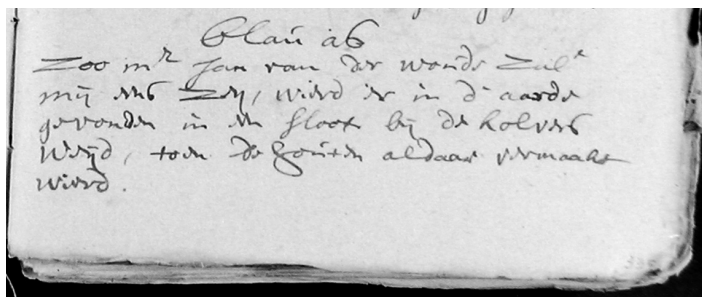 blau as
Zoo mr Jan van der woude Zalr
mij eens Zey, wierd er in d'aarde
gevonden in een sloot bij de kolvers
weijd, toen de houten aldaar vermaakt
wierd.